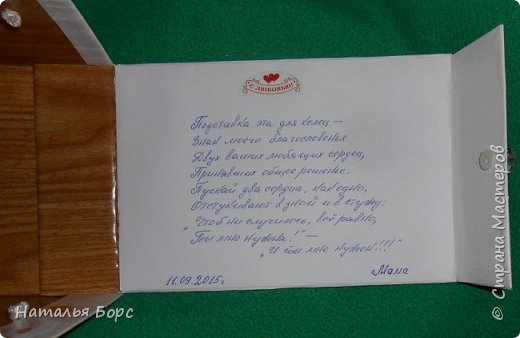 С ЛЮБОВЬЮ!
Подставка эта для колец –
Знак моего благословенья
Двух ваших любящих сердец,
Принявших общее решенье.
Пускай два сердца, как одно,
Отстукивают в зной и в стужу:
„Что б ни случилось, всё равно,
Ты мне нужна!" –
„И ты мне нужен!!!"
11.09.2015г
Мама
Наталья Борс
© Страна Мастеров